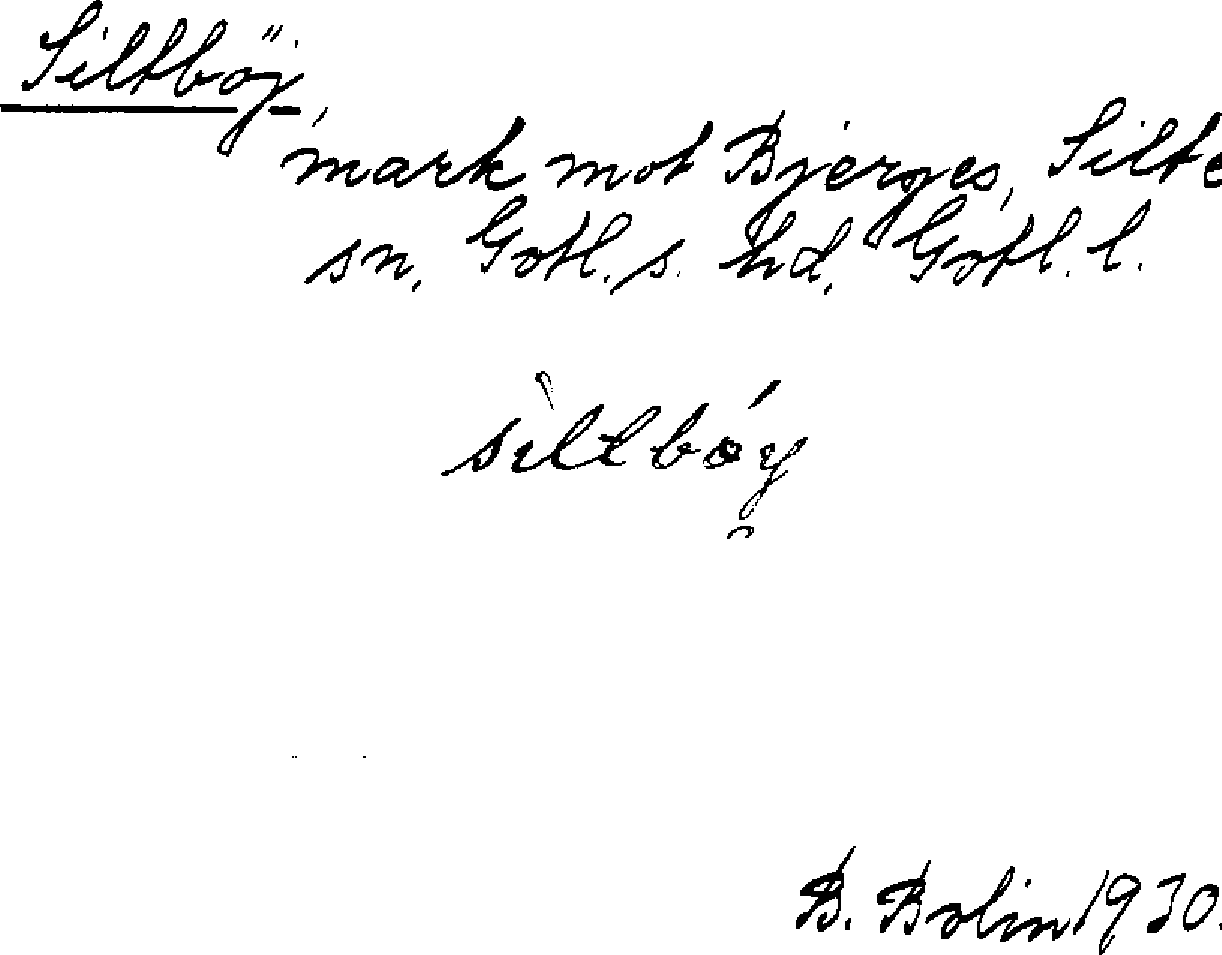 Siltböj,
mark mot Bjerges, Silte
sn, Gotl. s. hd, Gotl. l.
sìltbóy
B. Bolin 1930.